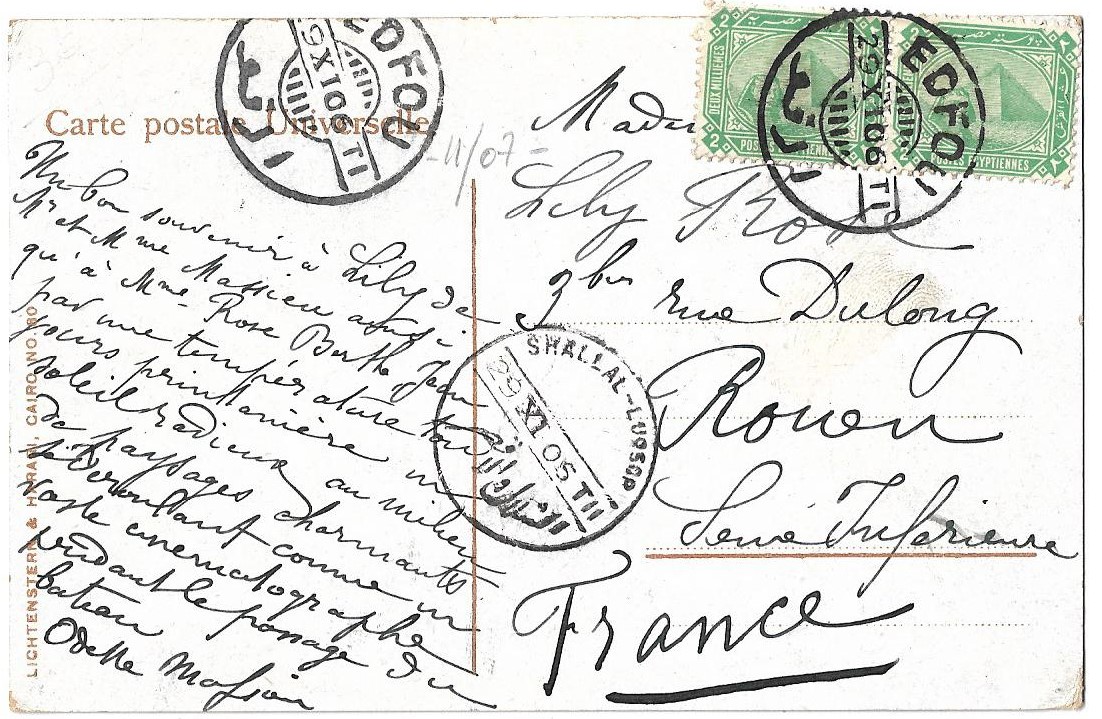 Carte postale Universelle
EDFOU
29 XI 06 TI
ادفو
2 DEUX MILLIEMES 2
POSTES EGYPTIENNES
EDFOU
29 XI 06 TI
ادفو
-11/07-
Un bon souvenir à Lily de
Mr et Mme Massieu ainsi
qu'à Mme Rose Berthe Jean
par une température tou
jours printanière un
soleil radieux au milieu
de paysages charmants
se déroulant comme un
vaste cinématographe
pendant le passage du
bateau
Odette
Lily Rose
9 bis rue Dulong
Rouen
Seine Inférieure
France
SHALLAL-LUQSOR
29 XI 05 TII
LICHTENSTERN & HARARI, CAIRO NO. 80